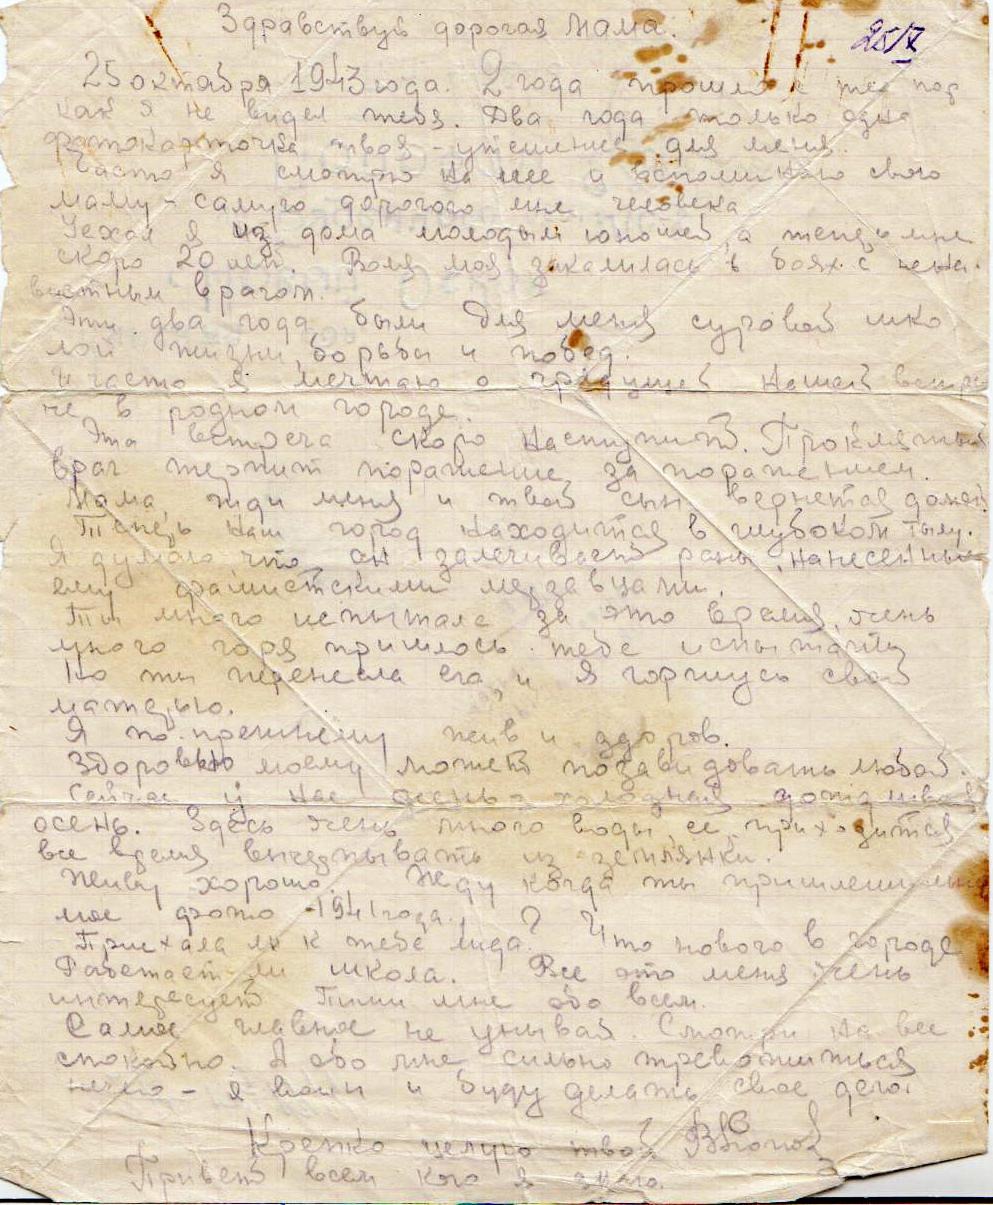 Здравствуй дорогая мама.
25/X
25 октября 1943 года. 2 года прошло с тех пор
как я не видел тебя. Два года только одна
фотокарточка твоя - утешение для меня.
Часто я смотрю на нее и вспоминаю свою
маму - самого дорогого мне человека
Уехал я из дома молодым юношей, а теперь мне
скоро 20 лет. Воля моя закалилась в боях с нена-
вистным врагом.
Эти два года были для меня суровой шко
лой жизни, борьбы и побед.
И часто я мечтаю о грядущей нашей встре
че в родном городе.
Эта встреча скоро наступит. Проклятый
враг терпит поражение за поражением.
Мама, жди меня и твой сын вернется домой.
Теперь наш город находится в глубоком тылу.
Я думаю что он залечивает раны, нанесенные
ему фашистскими мерзавцами.
Ты много испытала за это время, очень
много горя пришлось тебе испытать
Но ты перенесла его, и я горжусь свой
матерью.
Я по прежнему жив и здоров.
Здоровью моему может позавидовать любой.
Сейчас у нас осень - холодная дождливая
осень. Здесь очень много воды, ее приходится
все время вычерпывать из землянки.
Живу хорошо. Жду когда ты пришлешь мне
мое фото 1941 года.
Приехала ли к тебе Лида? Что нового в городе
Работает ли школа. Все это меня очень
интересует Пиши мне обо всем.
Самое главное не унывай. Смотри на все
спокойно. А обо мне сильно тревожиться
нечего - я воин и буду делать свое дело.
Крепко целую твой
Привет всем кого я знаю.